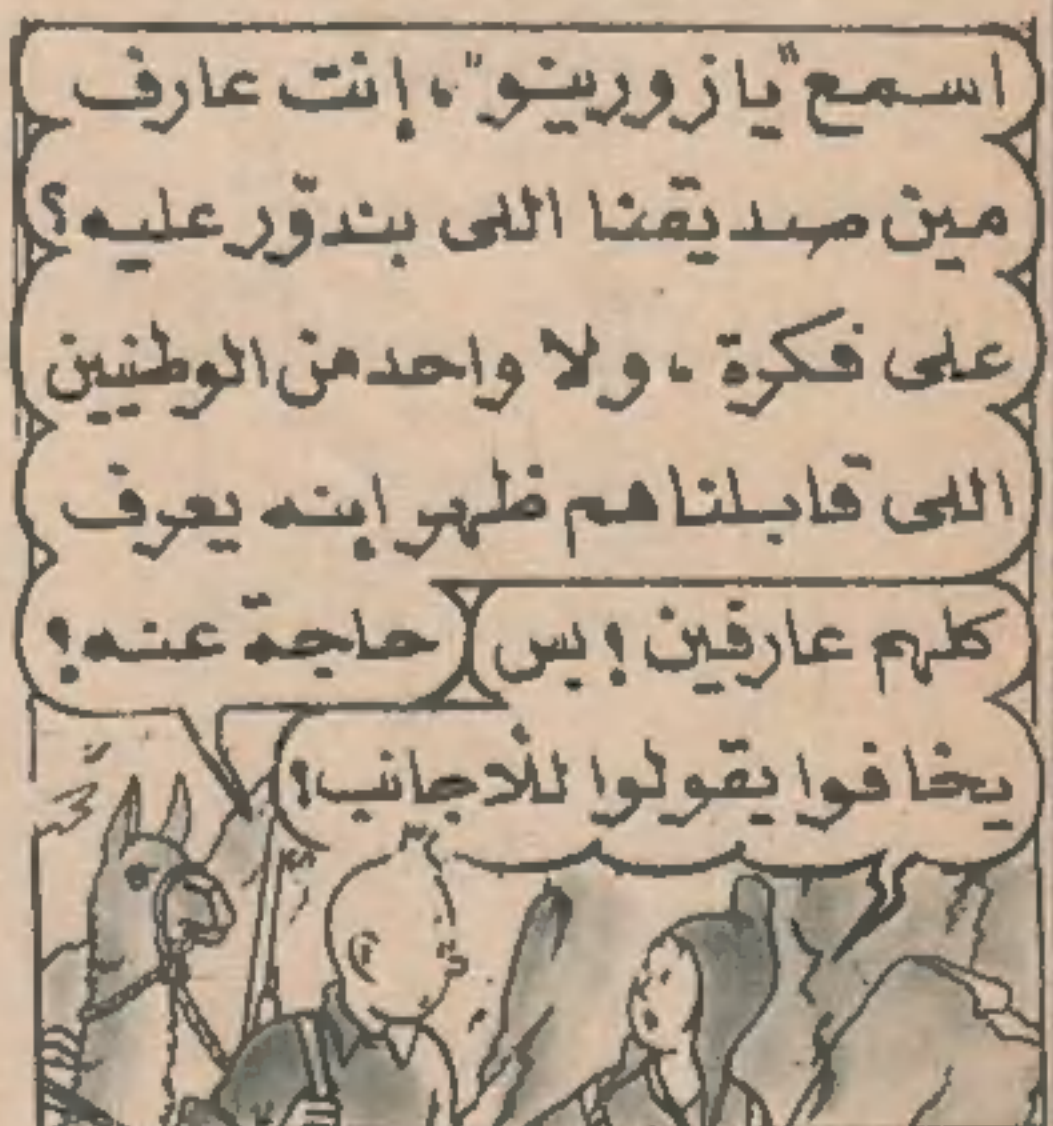 اسمع "يا زورينو"، إنت عارف
مين صديقنا اللى بندوّر عليه؟
على فكرة، ولا واحد من الوطنيين
اللى قابلناهم ظهر إنه يعرف
حاجة عنه!
كلهم عارفين! بس
يخافوا يقولوا للأجانب!